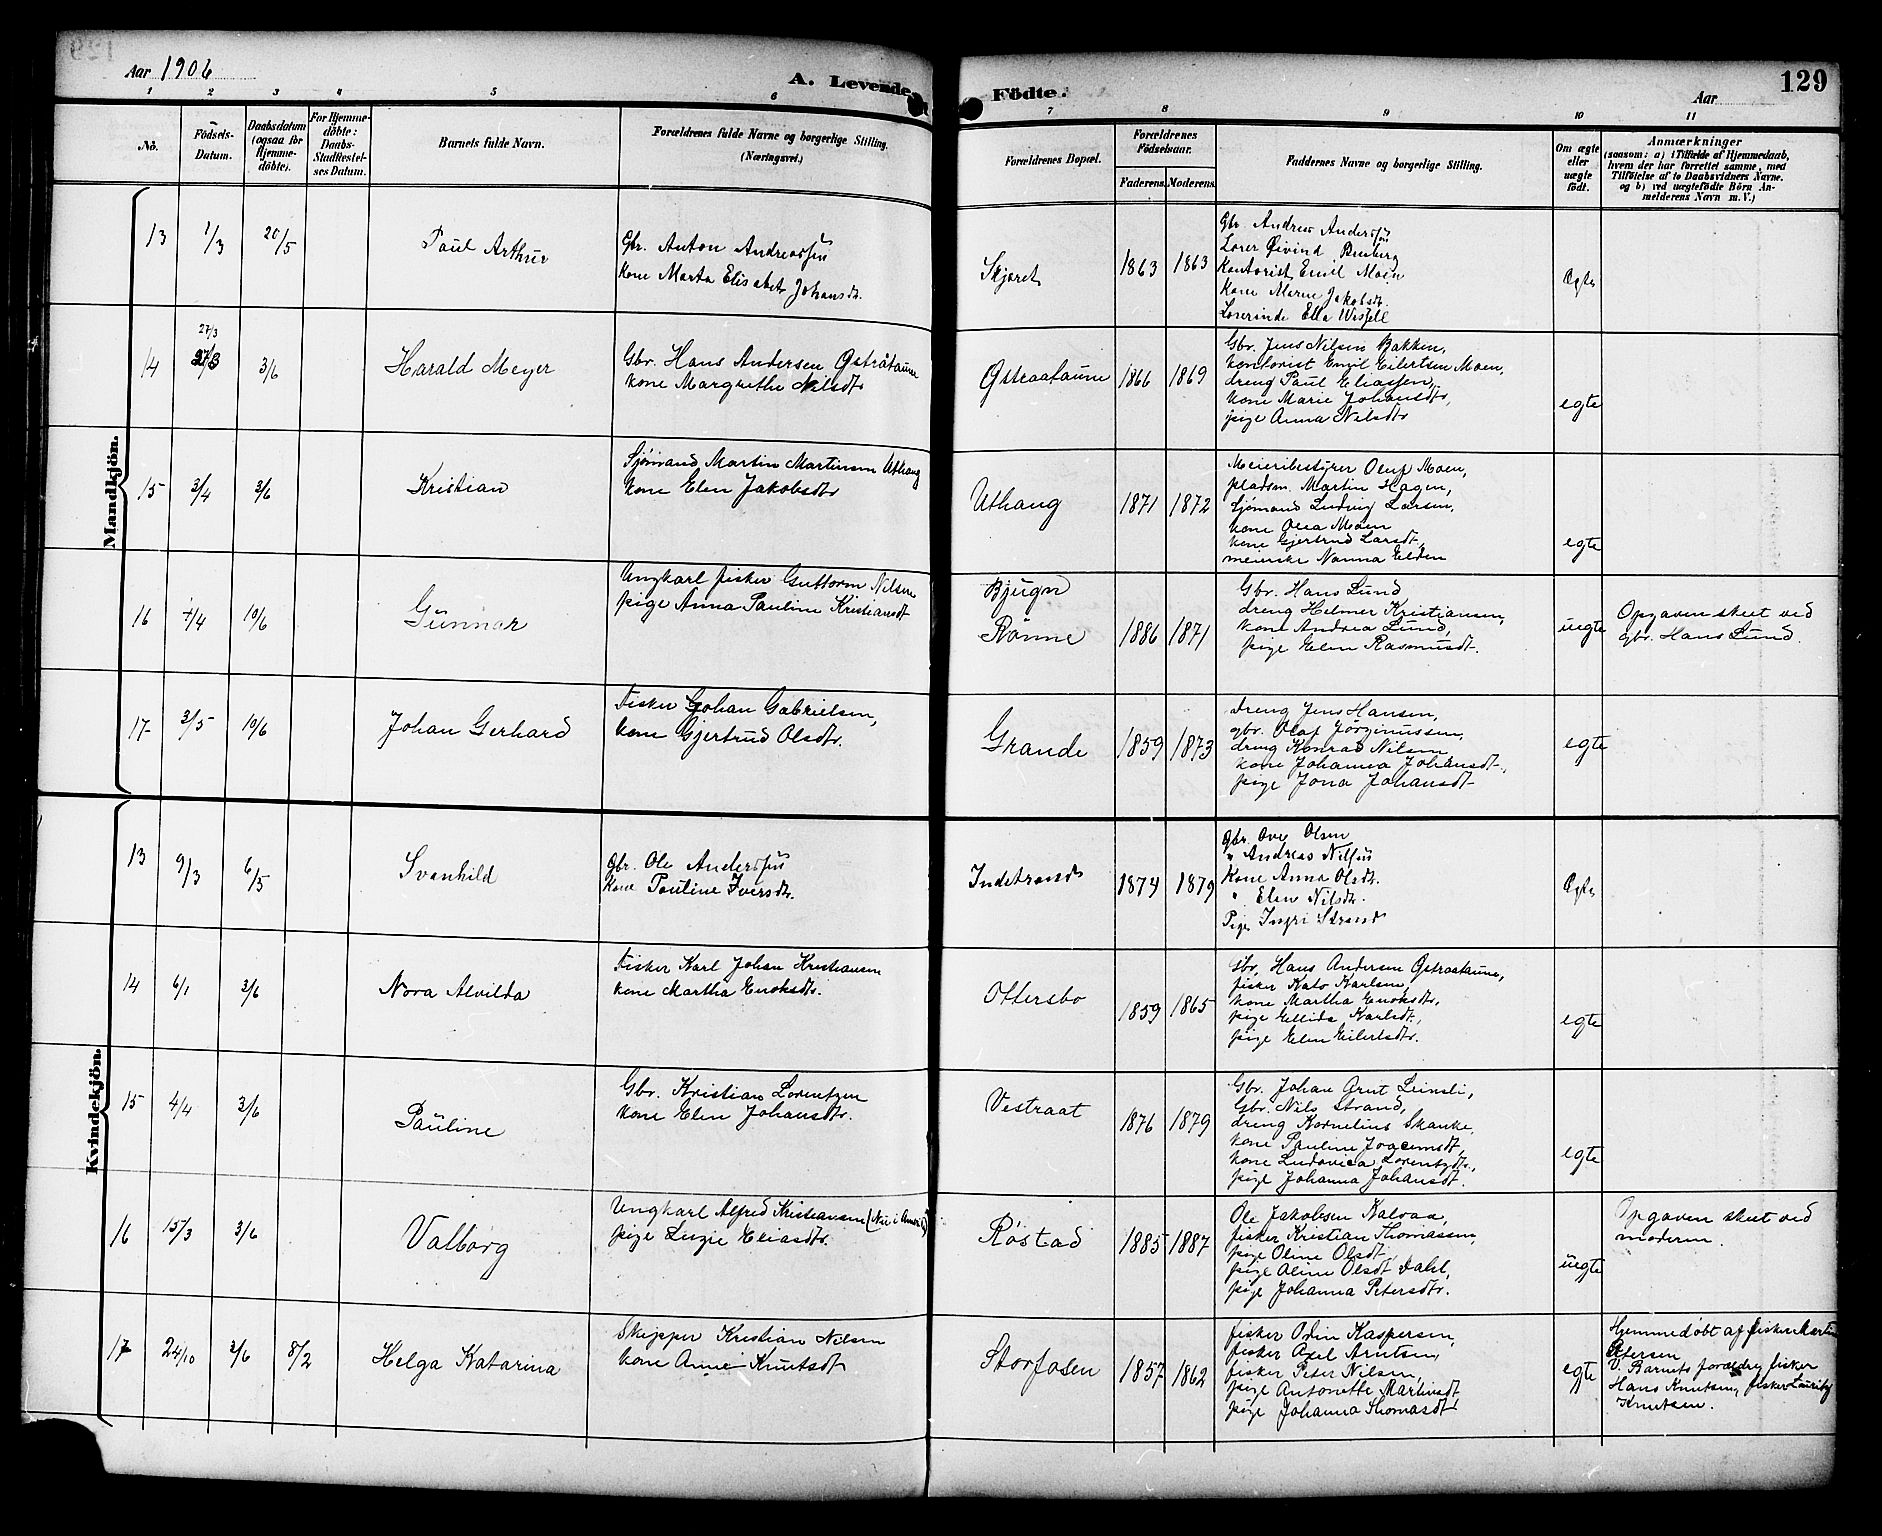 Aar 1906
A. Levende
1 2 3 4 5 6
No.
Födsels-
Datum.
Daabsdatum
(ogsaa for
Hjemme-
döbte).
For Hjemme-
döbte:
Daabs-
Stadfæstel-
ses Datum.
Barnets fulde Navn.
Forældrenes fulde Navne og borgerlige Stilling.
(Næringsvei.)
Mandkjön.
13 1/3 20/5 Paul Arthur
Gbr. Anton Andreassen
kone Marta Elisabet Johansdr.
14 27/3 3/6 Harald Meyer
27/3
Gbr. Hans Andersen Østråtaune
kone Margrethe Nilsdtr
15 3/4 3/6 Kristian
Sjømand Martin Martinsen Uthaug
kone Elen Jakobsdtr
16 7/4 10/6 Gunnar
Ungkarl fisker Guttorm Nilsen
pige Anna Pauline Kristiansdt
17 3/5 10/6 Johan Gerhard
Fisker Johan Gabrielsen,
kone Gjertrud Olsdtr.
Kvindekjön.
13 9/3 6/5 Svanhild
Gbr. Ole Anderssen
kone Pauline Iversdtr.
14 6/1 3/6 Nora Alvilda
Fisker Karl Johan Kristiansen
kone Martha Enoksdtr.
15 4/4 3/6 Pauline
Gbr. Kristian Lorentzen
kone Elen Johansdtr.
16 15/3 3/6 Valborg
Ungkarl Alfred Kristiansen (Nu i Amerika)
pige Lizie Eliasdtr.
17 24/10 3/6 8/2 Helga Katarina
Skipper Kristian Nilsen
kone Anne Knutsdt
Födte.
Aar
129
7 8 9 10 11
Forældrenes Bopæl.
Forældrenes
Födselsaar.
Faderens. Moderens.
Faddernes Navne og borgerlige Stilling.
Om ægte
eller
uægte
födt.
Anmærkninger
(saasom: a) i Tilfælde af Hjemmedaab,
hvem der har forrettet samme, med
Tilföielse af to Daabsvidners Navne.
og b) ved uægtefödte Börn An-
melderens Navn m. V.)
Skjøret 1863 1863
Gbr. Andreas Anderssen
Lærer Øivind
Kontorist Emil Moen
Kone Maren Jakobsdt.
Lærerinde Ella Wessell
Ægte
Østraataune 1866 1869
Gbr. Jens Nilsen Bakken,
kontorist Emil Eilertsen Moen,
dreng Paul Eliassen,
kone Marie Johansdtr,
pige Anna Nilsdtr
egte
Uthaug 1871 1872
Meieribestyrer Oluf Moen,
pladsm. Martin Hagen,
Sjømand Ludvig Larsen,
kone Olea Moen
kone Gjertrud Larsdt,
meierske Nanna Elden
egte
Bjugn
Rønne 1886 1871
Gbr. Hans Lund
dreng Helmer Kristiansen,
kone Andrea Lund,
pige Elen Rasmusdt.
uegte
Opgaven skeet ved
gbr. Hans Lund.
Grande 1859 1873
dreng Jens Hansen,
gbr. Olaf Jørginussen,
dreng Konrad Nilsen
kone Johanna Johansdt.,
pige Jona Johansdt
egte
Indstrand 1874 1879
Gbr. Ove Olsen
" Andreas Nilsen
Kone Anna Olsdtr.
" Elen Nilsdtr.
Pige Ingri Strand
Ægte
Ottersbo 1859 1865
Gbr. Hans Andersen Østraataune,
fisker Kato Karlsen,
kone Martha Enoksdtr,
pige Ellida Karlsdt.,
pige Elen Eilertsdtr.
egte
Vestraat 1876 1879
Gbr. Johan Arnt Leinsli,
Gbr. Nils Strand,
dreng Kornelius Skanke,
kone Pauline Joacimsdt,
kone Ludovica Lorentzdtr.,
pige Johanna Johansdt.
egte
Røstad 1885 1887
Ole Jakobsen Kalvaa,
fisker Kristian Thomassen,
pige Oline Olsdt,
pige Aline Olsdt Dahl,
pige Johanna Petersdtr.
uegte
Opgaven skeet ved
moderen.
Storfosen 1857 1862
fisker Odin Kaspersen,
fisker Axel Arntsen,
fisker Peter Nilsen,
pige Antonette Martinsdt,
pige Johanna Thomasdt
egte
Hjemmedøbt af fisker Martin
Petersen
V. Barnets forældre, fisker
Hans Knutsen, fisker Lauritz
Knutsen.